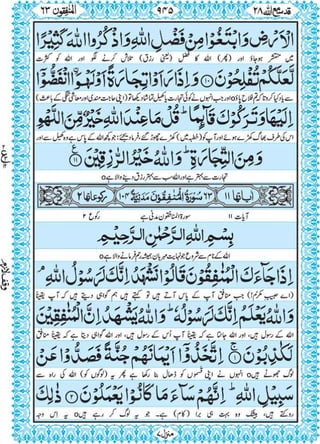 قد سمع الله ٢٨ ٩٤٥ المنفقون ٦٣
الْاَرْضِ وَابْتَغُوْا مِنْ فَضْلِ اللّٰهِ وَاذْكُرُوا اللّٰهَ كَثِيْرًا
میں منتشر ہو جاؤ اور (پھر) اللہ کا فضل (یعنی رزق) تلاش کرنے لگو اور اللہ کو کثرت
لَّعَلَّكُمْ تُفْلِحُوْنَ ۝١٠ وَاِذَا رَاَوْا تِجَارَةً اَوْ لَهْوَا۟ انْفَضُّوْۤا
سے یاد کیا کرو تاکہ تم فلاح پاؤ۝ اور جب انہوں نے کوئی تجارت یا کھیل تماشا دیکھا تو (اپنی حاجت مندی اور معاشی تنگی کے باعث)
اِلَيْهَا وَتَرَكُوْكَ قَآئِمًا ؕ قُلْ مَا عِنْدَ اللّٰهِ خَيْرٌ مِّنَ اللَّهْوِ
اس کی طرف بھاگ کھڑے ہوئے اور آپ کو (خطبہ میں) کھڑے چھوڑ گئے، فرما دیجئے: جو کچھ اللہ کے پاس ہے وہ کھیل سے اور
وَمِنَ التِّجَارَةِ ؕ وَاللّٰهُ خَيْرُ الرّٰزِقِيْنَ ۝١١
تجارت سے بہتر ہے اور اللہ سب سے بہتر رزق دینے والا ہے۝
اٰياتها ١١ ٦٣ سُوْرَةُ الْمُنٰفِقُوْنَ مَدَنِيَّةٌ ركوعاتها ٢
آیات ۱۱ سورۃ المنافقون مدنی ہے رکوع ۲
بِسْمِ اللّٰهِ الرَّحْمٰنِ الرَّحِيْمِ
اللہ کے نام سے شروع جو نہایت مہربان ہمیشہ رحم فرمانے والا ہے۝
اِذَا جَآءَكَ الْمُنٰفِقُوْنَ قَالُوْا نَشْهَدُ اِنَّكَ لَرَسُوْلُ اللّٰهِ ۘ
(اے حبیبِ مکرّم!) جب منافق آپ کے پاس آتے ہیں تو کہتے ہیں ہم گواہی دیتے ہیں کہ آپ یقیناً
وَاللّٰهُ يَعْلَمُ اِنَّكَ لَرَسُوْلُهٗ ؕ وَاللّٰهُ يَشْهَدُ اِنَّ الْمُنٰفِقِيْنَ
اللہ کے رسول ہیں، اور اللہ جانتا ہے کہ یقیناً آپ اُس کے رسول ہیں، اور اللہ گواہی دیتا ہے کہ یقیناً منافق
لَكٰذِبُوْنَ ۝١ اِتَّخَذُوْۤا اَيْمَانَهُمْ جُنَّةً فَصَدُّوْا عَنْ
لوگ جھوٹے ہیں۝ انہوں نے اپنی قسموں کو ڈھال بنا رکھا ہے پھر یہ (لوگوں کو) اللہ کی راہ سے
سَبِيْلِ اللّٰهِ ؕ اِنَّهُمْ سَآءَ مَا كَانُوْا يَعْمَلُوْنَ ۝٢ ذٰلِكَ
روکتے ہیں، بیشک وہ بہت ہی برا (کام) ہے جو یہ لوگ کر رہے ہیں۝ یہ اس وجہ
منزل ٧